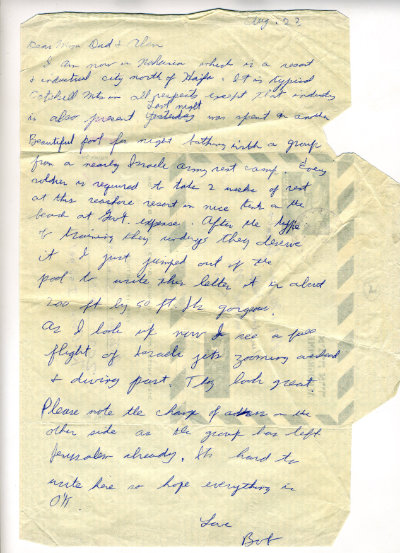 Aug. 22
Dear Mom Dad & Alan
I am now in Naharia which is a resort
& industrial city north of Haifa. It is typical
Catskill Mts in all respects except that industry
is also present. Last night
Yesterday was spent in another
Beautiful pool for night bathing with a group
from a nearby Israeli army rest camp. Every
soldier is required to take 2 weeks of rest
at this seashore resort in nice tents on the
beach at Govt. expense. After the type
of training they undergo they deserve
it. I just jumped out of the
pool to write this letter it is about
200 ft by 50 ft. Its gorgeous.
As I look up now I see a full
flight of Israeli jets zooming around
& diving past. They look great
Please note the change of address on the
other side as the group has left
Jerusalem already. Its hard to
write here so hope everything is
O'K
Love
Bob